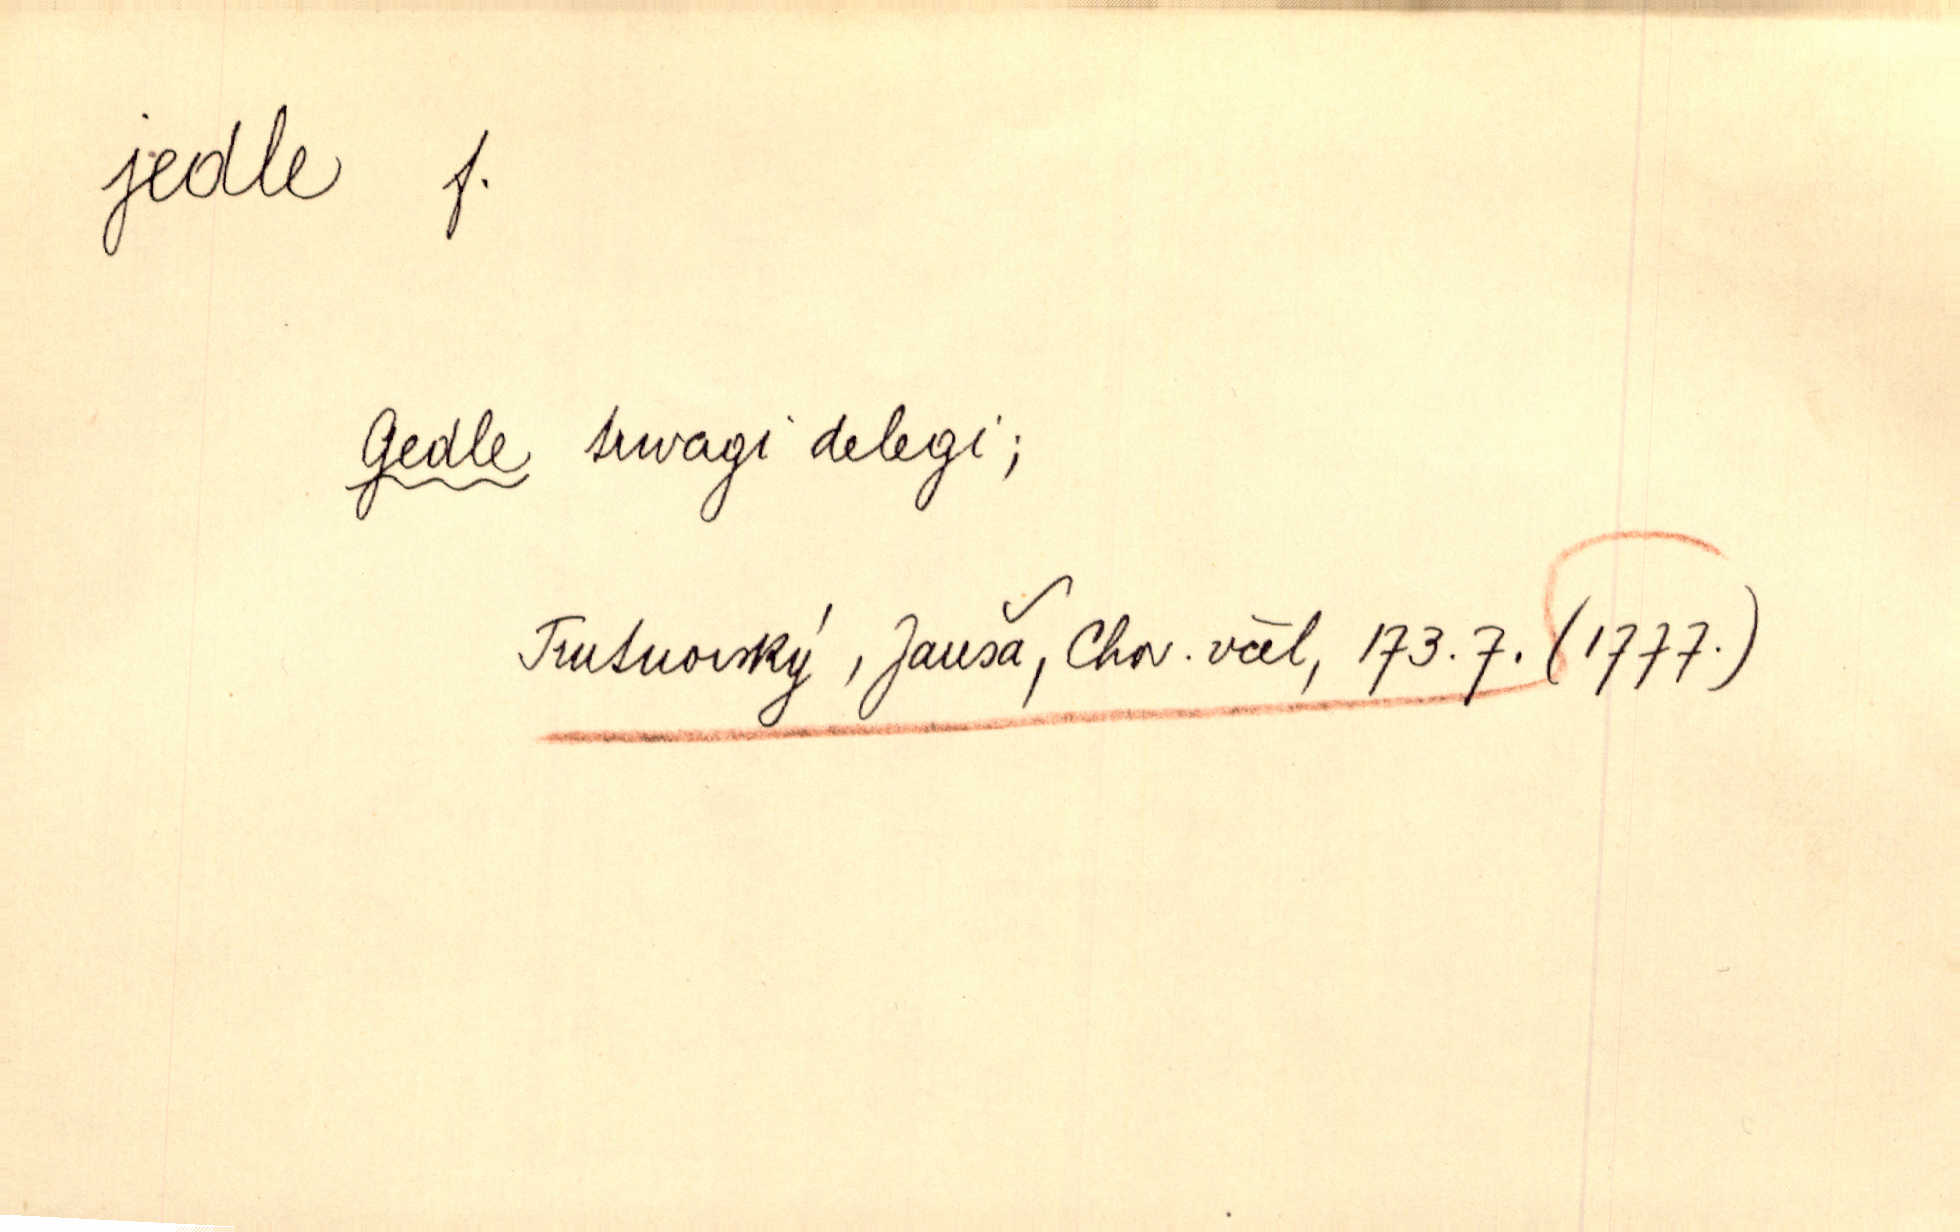 jedle f.
Gedle trwagi delegi;
Trutnovský, Janša, Chov. včel, 173.7. (1777.)